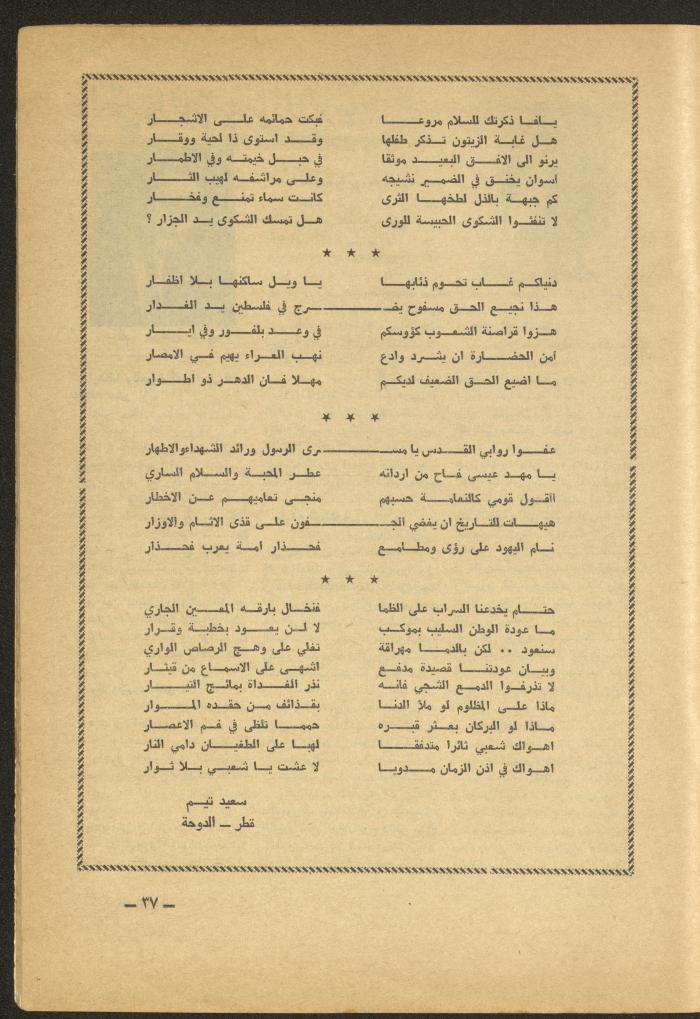 يافا ذكرتك للسلام مروعا فبكت حمائمه على الاشجار
هل غابة الزيتون تذكر طفلها وقد استوى ذا لحية ووقار
يرنو الى الافق البعيد موثقا في حبل خيمته وفي الاطمار
اسوان يخنق في الضمير نشيجه وعلى مراشفه لهيب الثار
كم جبهة بالذل لطخها الثرى كانت سماء تمنع وفخار
لا تنفثوا الشكوى الحبيسة للورى هل تمسك الشكوى يد الجزار ؟
★ ★ ★
دنياكم غاب تحوم ذئابها يا ويل ساكنها بلا اظفار
هذا نجيع الحق مسفوح يضـ ـرج في فلسطين يد الغدار
هزوا قراصنة الشعوب كؤوسكم في وعد بلفور وفي ايار
امن الحضارة ان يشرد وادع نهب العراء يهيم في الامصار
ما اضيع الحق الضعيف لديكم مهلا فان الدهر ذو اطوار
★ ★ ★
عفوا روابي القدس يا مسـ ـرى الرسول ورائد الشهداء والاطهار
يا مهد عيسى فاح من اردانه عطر المحبة والسلام الساري
ااقول قومي كالنعامة حسبهم منجى تعاميهم عن الاخطار
هيهات للتاريخ ان يغضي الجـ ـفون على قذى الاثام والاوزار
نام اليهود على رؤى ومطامع فحذار امة يعرب فحذار
★ ★ ★
حتام يخدعنا السراب على الظما فنخال بارقه المعين الجاري
ما عودة الوطن السليب بموكب لا لن يعود بخطبة وقرار
سنعود .. لكن بالدما مهراقة تغلي على وهج الرصاص الواري
وبيان عودتنا قصيدة مدفع اشهى على الاسماع من قيثار
لا تذرفوا الدمع الشجي فانه نذر الغداة بمائج التيار
ماذا على المظلوم لو ملأ الدنا بقذائف من حقده الموار
ماذا لو البركان بعثر قبره حمما تلظى في فم الاعصار
اهواك شعبي ثائرا متدفقا لهبا على الطغيان دامي النار
اهواك في اذن الزمان مدويا لا عشت يا شعبي بلا ثوار
سعيد تيم
قطر ــ الدوحة
ــ ٣٧ ــ